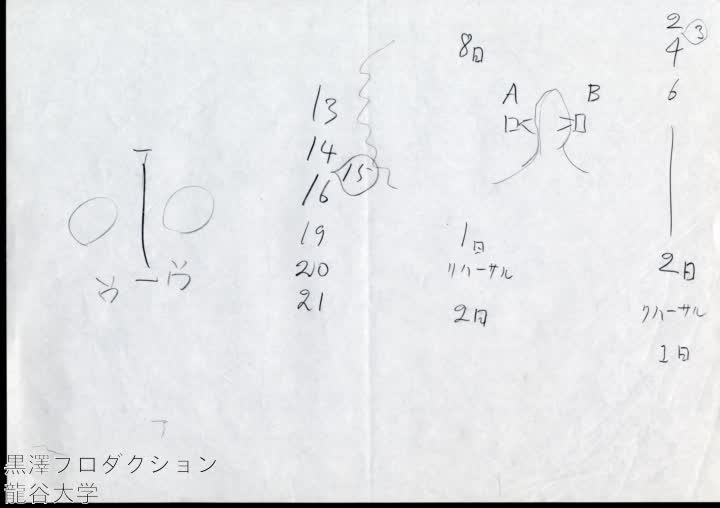 13
14
15
16
19
20
21
8日
A B
1日
リハーサル
2日
2
3
4
6
2日
リハーサル
1日
黒澤プロダクション
龍谷大学